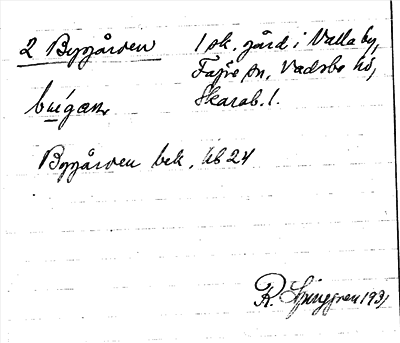 2 Byggården
1 sk. gård i Valla by,
Fägre sn, Vadsbo hd,
Skarab. l.
Byggården bek. hb 24
R. Ljunggren 1931